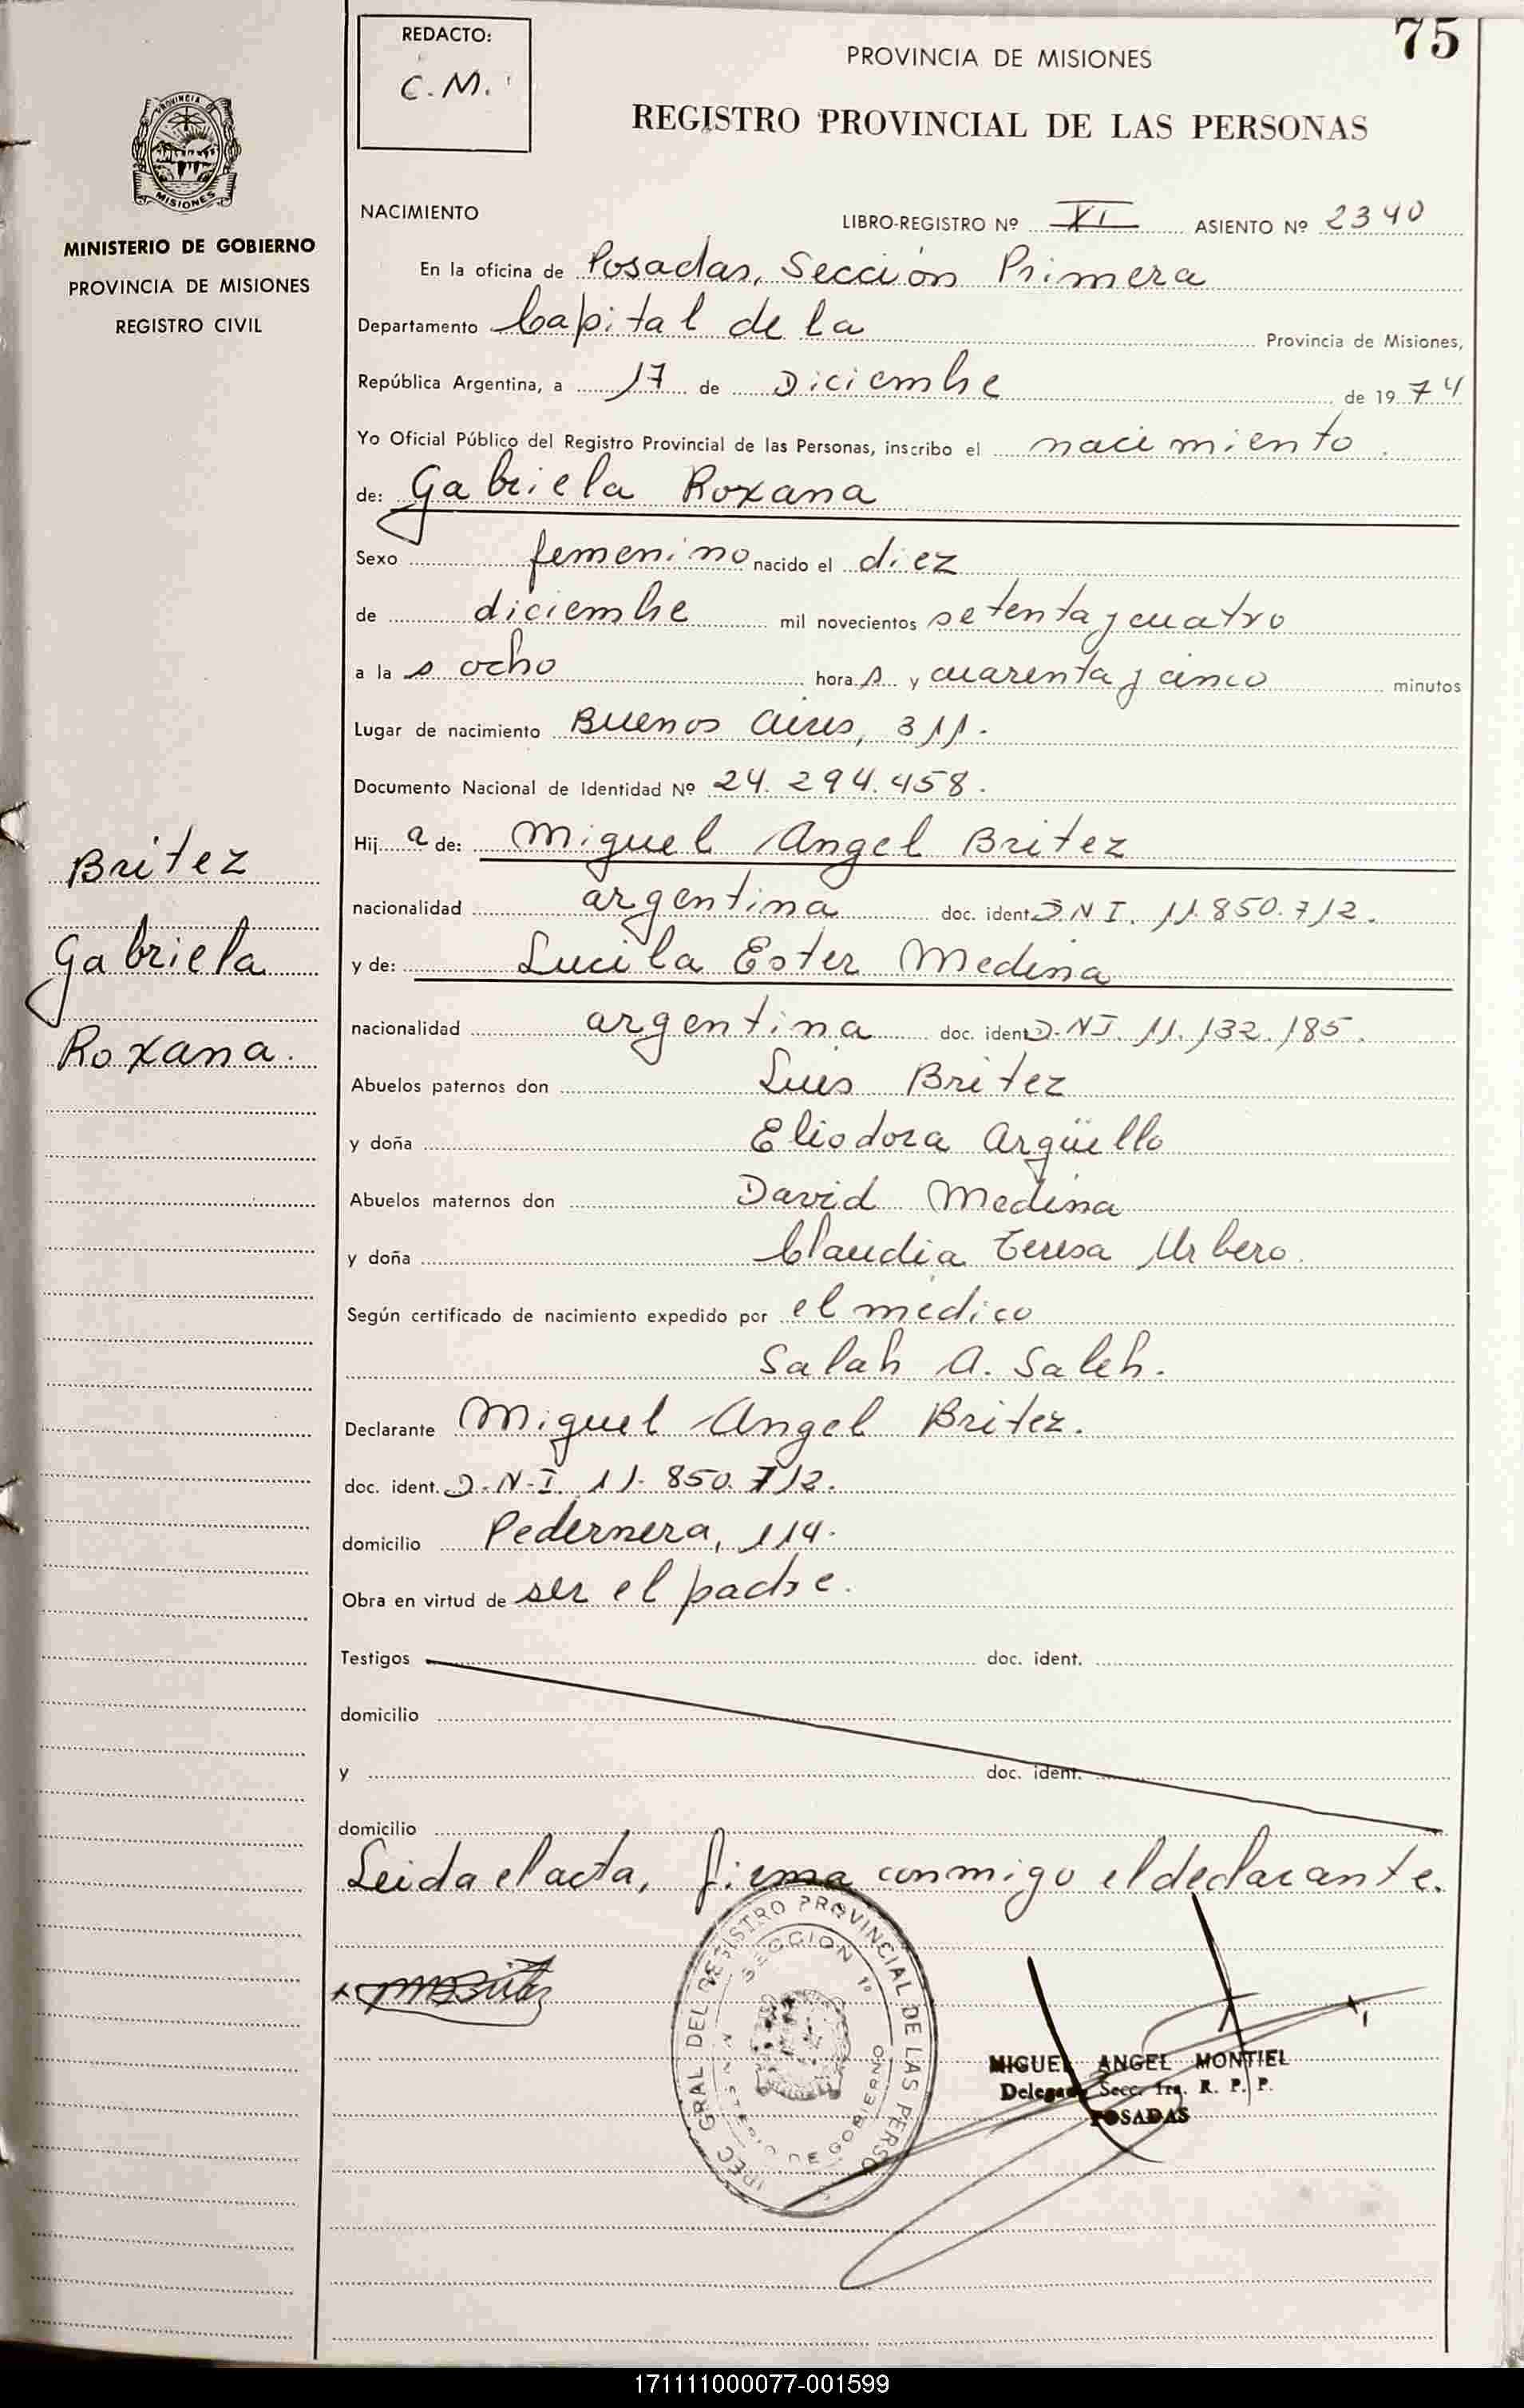 75
REDACTO:
C.M.
PROVINCIA DE MISIONES
REGISTRO PROVINCIAL DE LAS PERSONAS
PROVINCIA
MISIONES
MINISTERIO DE GOBIERNO
PROVINCIA DE MISIONES
REGISTRO CIVIL
NACIMIENTO
LIBRO-REGISTRO Nº XI ASIENTO Nº 2340
En la oficina de Posadas, Sección Primera
Departamento Capital de la Provincia de Misiones,
República Argentina, a 17 de Diciembre de 1974
Yo Oficial Público del Registro Provincial de las Personas, inscribo el nacimiento.
de: Gabriela Roxana
Sexo femenino nacido el diez
de diciembre mil novecientos setenta y cuatro
a la s ocho hora s y cuarenta y cinco minutos
Lugar de nacimiento Buenos Aires, 311.
Documento Nacional de Identidad Nº 24.294.458.
Hij a de: Miguel Angel Britez
nacionalidad argentina doc. ident. D.N.I. 11.850.712.
y de: Lucila Ester Medina
nacionalidad argentina doc. ident. D.N.I. 11.132.185.
Abuelos paternos don Luis Britez
y doña Eliodora Argüello
Abuelos maternos don David Medina
y doña Claudia Teresa Urbero.
Según certificado de nacimiento expedido por el médico
Salah A. Saleh.
Declarante Miguel Angel Britez.
doc. ident. D.N.I. 11.850.712.
domicilio Pedernera, 114.
Obra en virtud de ser el padre.
Testigos doc. ident.
domicilio
y doc. ident.
domicilio
Leida el acta, firma conmigo el declarante.
Britez
Gabriela
Roxana.
MBritez
DIREC. GRAL DEL REGISTRO PROVINCIAL DE LAS PERSO
SECCION 1º
MINISTERIO DE GOBIERNO
MIGUEL ANGEL MONTIEL
Delegado Secc. 1ra. R. P. P.
POSADAS
171111000077-001599